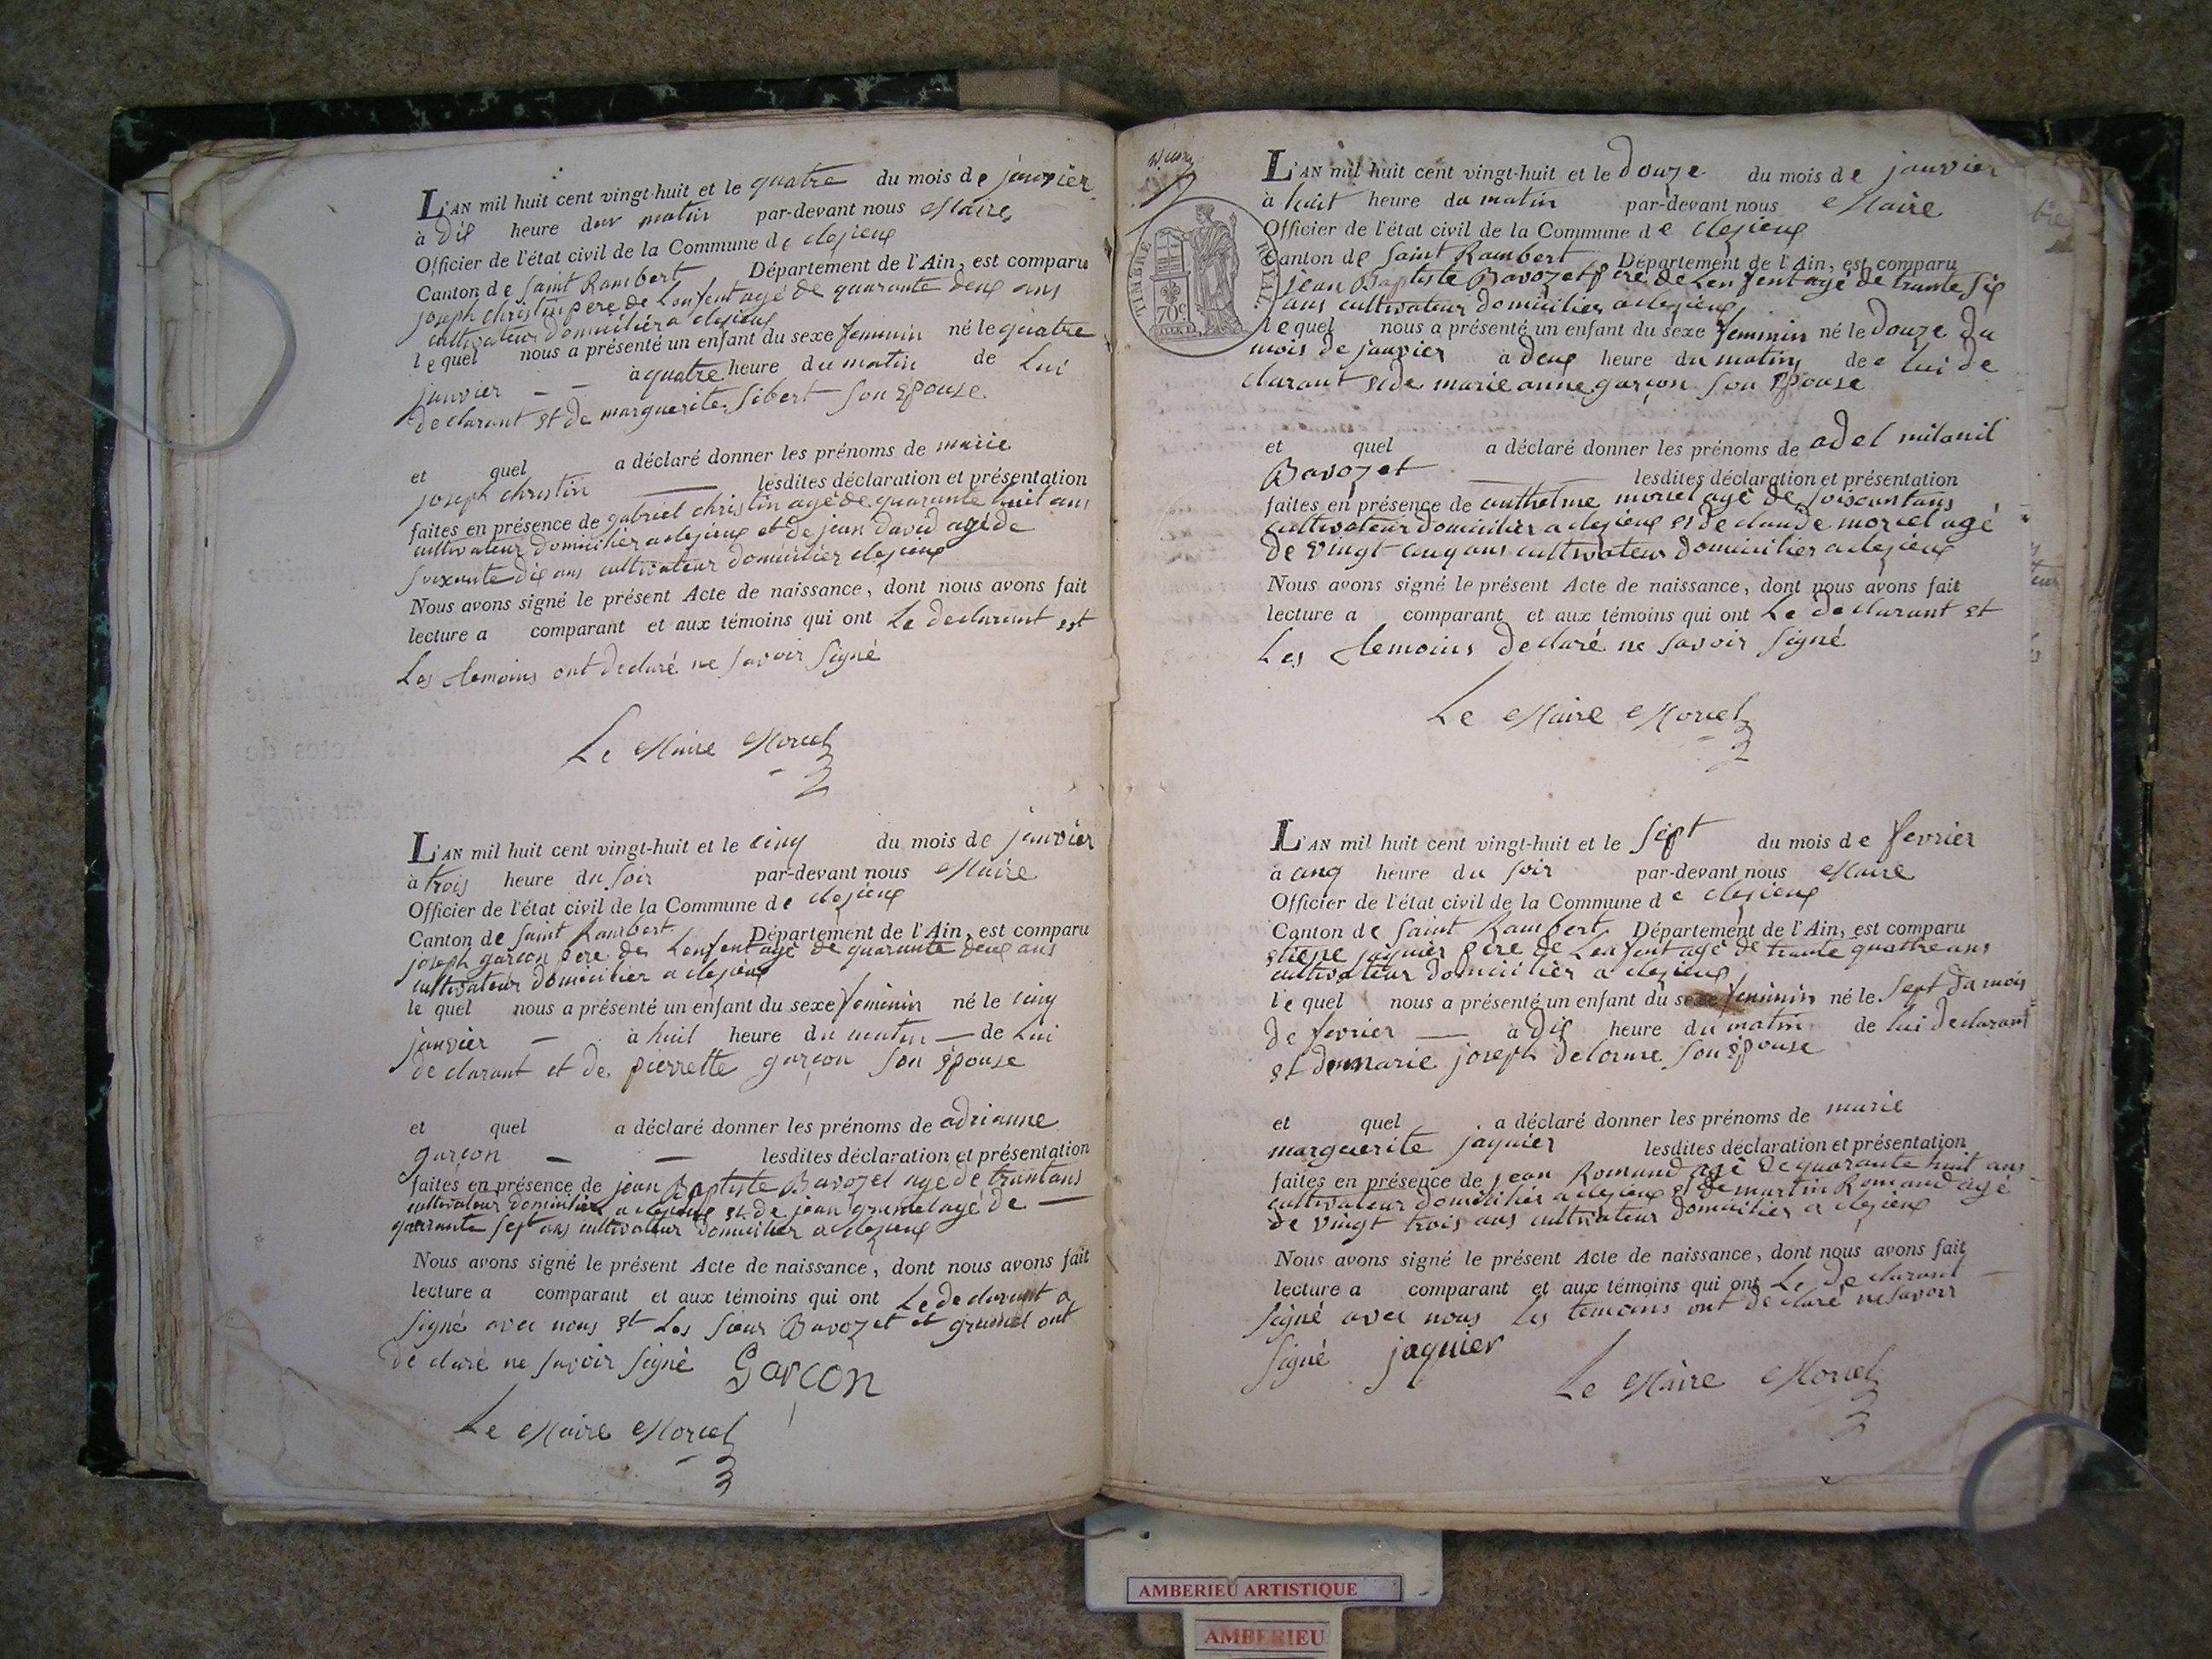 L'AN mil huit cent vingt-huit et le quatre du mois de janvier
à dix heure du matin par-devant nous Maire
Officier de l'état civil de la Commune de clezieux
Canton de saint Rambert Département de l'Ain, est comparu
joseph christin pere de Lenfent agé de quarante deux ans
cultivateur domicilier a clezieux
lequel nous a présenté un enfant du sexe feminin né le quatre
janvier — — à quatre heure du matin de Lui
declarant et de marguerite Sibert son Epouse
et quel a déclaré donner les prénoms de marie
joseph christin — lesdites déclaration et présentation
faites en présence de gabriel christin agé de quarante huit ans
cultivateur domicilier a clezieux et de jean david agé de
soixante dix ans cultivateur domicilier clezieux
Nous avons signé le présent Acte de naissance, dont nous avons fait
lecture a comparant et aux témoins qui ont Le declarant est
Les temoins ont declaré ne savoir signé
Le Maire Morcel
L'AN mil huit cent vingt-huit et le cinq du mois de janvier
à trois heure du soir par-devant nous Maire
Officier de l'état civil de la Commune de clezieux
Canton de saint Rambert Département de l'Ain, est comparu
joseph garcon pere de Lenfent agé de quarante deux ans
cultivateur domicilier a clezieux
le quel nous a présenté un enfant du sexe feminin né le cinq
janvier — à huit heure du matin — de Lui
declarant et de pierrette garçon son Epouse
et quel a déclaré donner les prénoms de adrianne
garçon — — lesdites déclaration et présentation
faites en présence de jean Baptiste Bavozet agé de trantans
cultivateur domicilier a clezieux et de jean grumet agé de —
quarante sept ans cultivateur domicilier a clezieux
Nous avons signé le présent Acte de naissance, dont nous avons fait
lecture a comparant et aux témoins qui ont Le declarant a
signé avec nous et Les sieur Bavozet et grumet ont
declaré ne savoir signé Garçon
Le Maire Morcel
TIMBRE ROYAL
70c
L'AN mil huit cent vingt-huit et le douze du mois de janvier
à huit heure du matin par-devant nous Maire
Officier de l'état civil de la Commune de clezieux
Canton de Saint Rambert Département de l'Ain, est comparu
jean Baptiste Bavozet pere de Lenfent agé de trante six
ans cultivateur domicilier a clezieux
lequel nous a présenté un enfant du sexe feminin né le douze du
mois de janvier à deux heure du matin de lui de
clarant et de marie anne garçon son Epouse
et quel a déclaré donner les prénoms de adel milanil
Bavozet — lesdites déclaration et présentation
faites en présence de anthelme morcel agé de soiscantans
cultivateur domicilier a clezieux et de claude morcel agé
de vingt cinq ans cultivateur domicilier a clezieux
Nous avons signé le présent Acte de naissance, dont nous avons fait
lecture a comparant et aux témoins qui ont Le declarant et
Les temoins declaré ne savoir signé
Le Maire Morcel
L'AN mil huit cent vingt-huit et le sept du mois de fevrier
à cinq heure du soir par-devant nous Maire
Officier de l'état civil de la Commune de clezieux
Canton de Saint Rambert Département de l'Ain, est comparu
etiene jaquier pere de Lenfent agé de trante quattre ans
cultivateur domicilier a clezieux
le quel nous a présenté un enfant du sexe feminin né le sept du mois
de fevrier — à dix heure du matin de lui declarant
et de marie joseph delorme son Epouse
et quel a déclaré donner les prénoms de marie
marguerite jaquier lesdites déclaration et présentation
faites en présence de jean Romand agé de quarante huit ans
cultivateur domicilier a clezieux et de martin Romand agé
de vingt trois ans cultivateur domicilier a clezieux
Nous avons signé le présent Acte de naissance, dont nous avons fait
lecture a comparant et aux témoins qui ont Le declarant —
signé avec nous les temoins ont declaré ne savoir
signé jaquier
Le Maire Morcel
AMBERIEU ARTISTIQUE
AMBERIEU